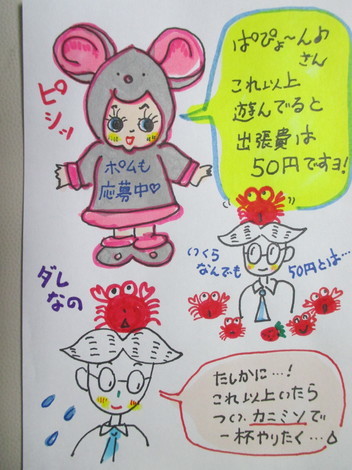 ぱぴょ〜んぬ
さん
これ以上
遊んでると
出張費は
50円ですョ!
ピシッ
ポムも
応募中♡
いくら
なんでも
50円とは…
ダレ
なの
たしかに…!
これ以上いたら
つい、カニミソで
一杯やりたく…